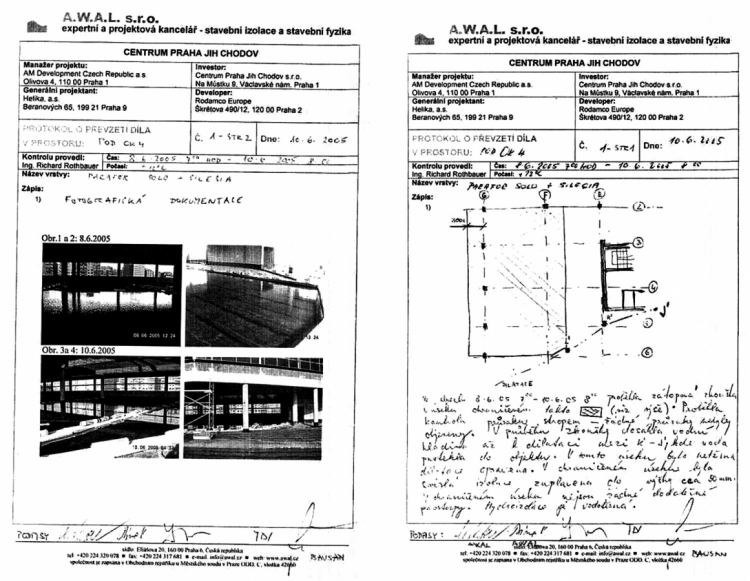 A.W.A.L. s.r.o.
expertní a projektová kancelář - stavební izolace a stavební fyzika
CENTRUM PRAHA JIH CHODOV
Manažer projektu:
AM Development Czech Republic a.s.
Olivova 4, 110 00 Praha 1
Investor:
Centrum Praha Jih Chodov s.r.o.
Na Můstku 9, Václavské nám. Praha 1
Generální projektant:
Helika, a.s.
Beranových 65, 199 21 Praha 9
Developer:
Rodamco Europe
Škrétova 490/12, 120 00 Praha 2
PROTOKOL O PŘEVZETÍ DÍLA
V PROSTORU: POD CH 4
Č. 1 - STR2 Dne: 10.6.2005
Kontrolu provedl:
Ing. Richard Rothbauer
Čas: 8.6.2005 7⁰⁰ HOD - 10.6.2005 8⁰⁰
Počasí:
Název vrstvy: PARAFOR SOLO + SILESIA
Zápis:
1) FOTOGRAFICKÁ DOKUMENTACE
Obr.1 a 2: 8.6.2005
08 06 2005 12 24
Obr. 3a 4: 10.6.2005
PODPISY
TDI
sídlo: Eliášova 20, 160 00 Praha 6, Česká republika
tel: +420 224 320 078 ■ fax: +420 224 317 681 ■ e-mail: info@awal.cz ■ web: www.awal.cz
BAUSAN
společnost je zapsána v Obchodním rejstříku u Městského soudu v Praze ODD. C, vložka 42660
A.W.A.L. s.r.o.
expertní a projektová kancelář - stavební izolace a stavební fyzika
CENTRUM PRAHA JIH CHODOV
Manažer projektu:
AM Development Czech Republic a.s.
Olivova 4, 110 00 Praha 1
Investor:
Centrum Praha Jih Chodov s.r.o.
Na Můstku 9, Václavské nám. Praha 1
Generální projektant:
Helika, a.s.
Beranových 65, 199 21 Praha 9
Developer:
Rodamco Europe
Škrétova 490/12, 120 00 Praha 2
PROTOKOL O PŘEVZETÍ DÍLA
V PROSTORU: POD CH 4
Č. 1 - STR1 Dne: 10.6.2005
Kontrolu provedl:
Ing. Richard Rothbauer
Čas: 8.6.2005 7⁰⁰ HOD - 10.6.2005 8⁰⁰
Počasí:
Název vrstvy: PARAFOR SOLO + SILESIA
Zápis:
1)
G F E
2
3
4
5
6
DILATACE
V dnech 8.6.05 7⁰⁰ - 10.6.05 8⁰⁰ proběhla zátopová zkouška
v úseku ohraničeném takto (viz výše). Proběhla
kontrola průsaku stropem - žádné průsaky nebyly
objeveny. V průběhu zkoušky dosáhla vodní
hladina až k dilataci mezi K - J, kde voda
protékala do objektu. V tomto úseku bylo
dilatace opravena. V ohraničeném úseku byla
svislá izolace zaplavena do výšky cca 50 mm.
V ohraničeném úseku nejsou žádné dodatečné
prostupy. Hydroizolace je vodotěsná.
PODPISY:
AWAL
TDI
sídlo: Eliášova 20, 160 00 Praha 6, Česká republika
tel: +420 224 320 078 ■ fax: +420 224 317 681 ■ e-mail: info@awal.cz ■ web: www.awal.cz
BAUSAN
společnost je zapsána v Obchodním rejstříku u Městského soudu v Praze ODD. C, vložka 42660